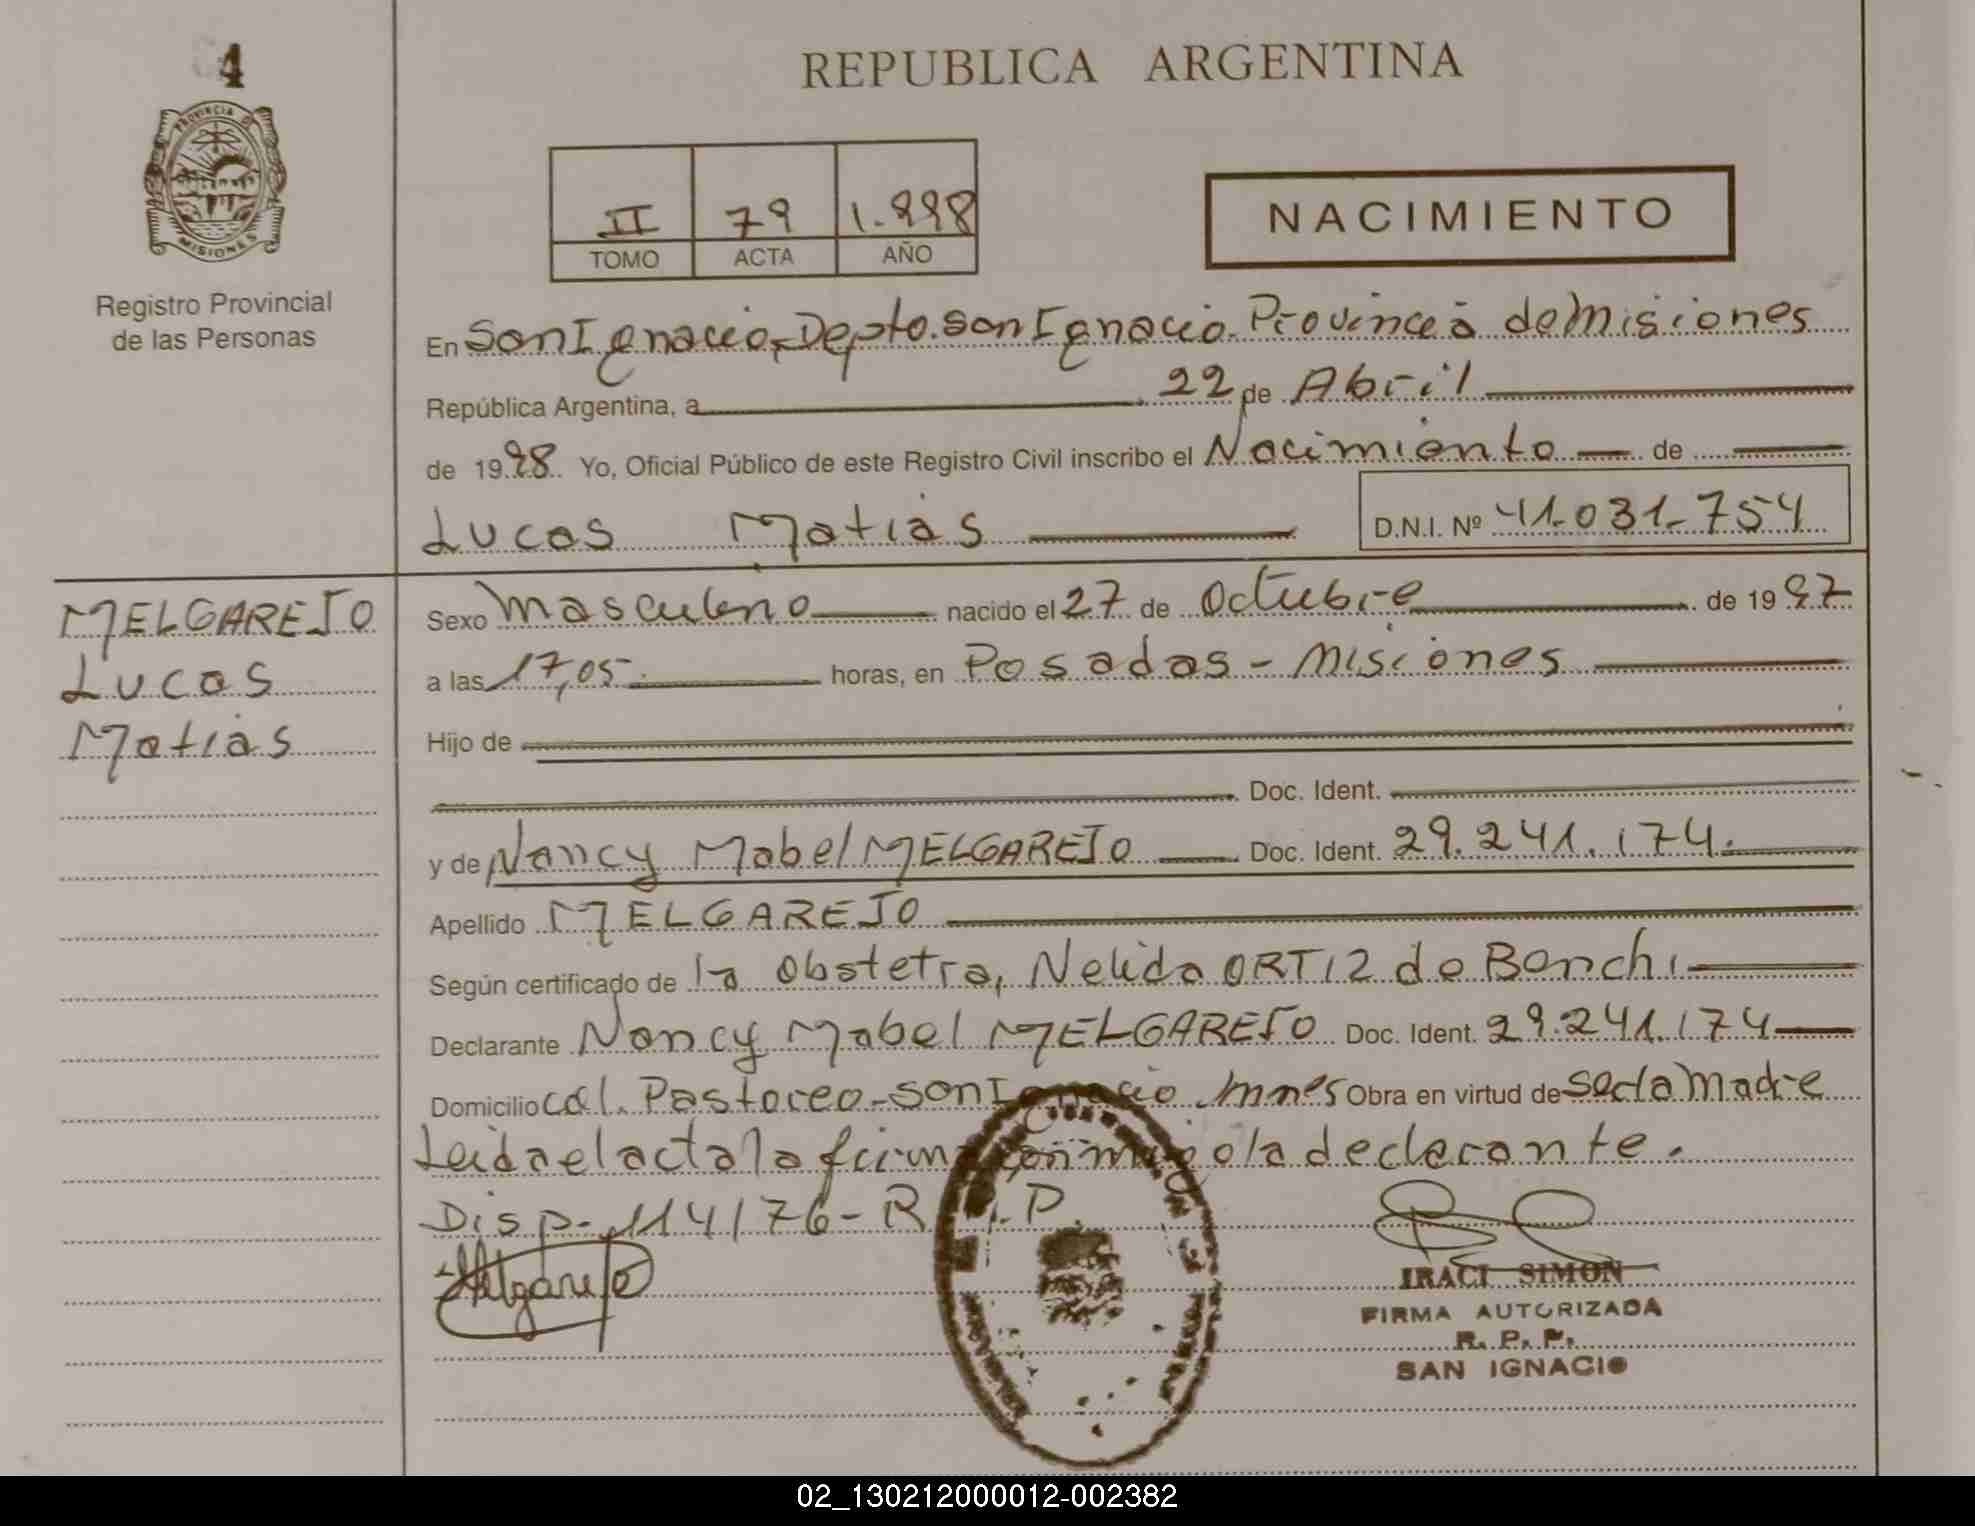 4
PROVINCIA D
MISIONES
Registro Provincial
de las Personas
REPUBLICA ARGENTINA
II 79 1.998
TOMO ACTA AÑO
NACIMIENTO
En San Ignacio, Depto. San Ignacio. Provincia de Misiones
República Argentina, a 22 de Abril
de 1998. Yo, Oficial Público de este Registro Civil inscribo el Nacimiento de
Lucas Matias D.N.I. Nº 41.031.754
MELGAREJO
Lucas
Matias
Sexo Masculino nacido el 27 de Octubre de 1997
a las 17,05 horas, en Posadas - Misiones
Hijo de
Doc. Ident.
y de Nancy Mabel MELGAREJO Doc. Ident. 29.241.174.
Apellido MELGAREJO
Según certificado de la obstetra, Nelida ORTIZ de Bonchi
Declarante Nancy Mabel MELGAREJO Doc. Ident. 29.241.174
Domicilio Col. Pastoreo - San Ignacio Mnes Obra en virtud de ser la Madre
Leida el acta la firma conmigo la declarante.
Disp. 114/76 - R. .P.
Melgarejo
IRACI SIMON
FIRMA AUTORIZADA
R. P. P.
SAN IGNACIO
02_130212000012-002382